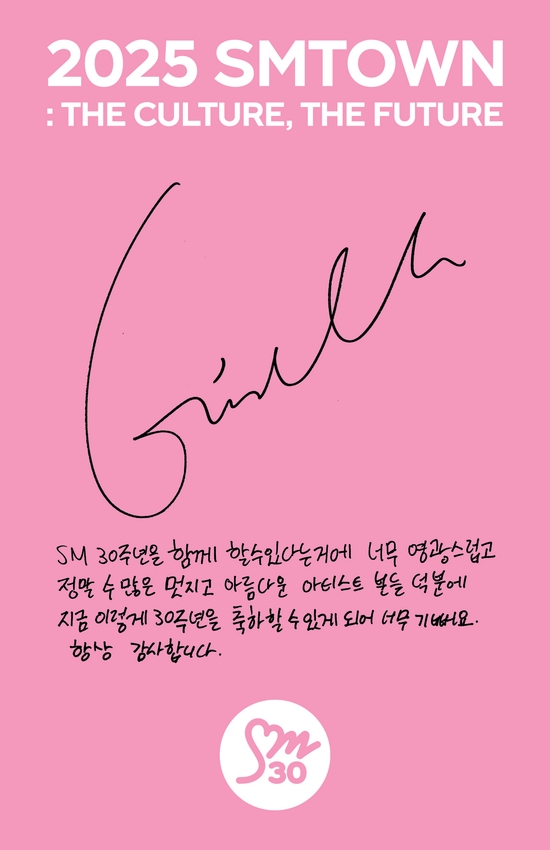 2025 SMTOWN
: THE CULTURE, THE FUTURE
Giselle
SM 30주년을 함께 할수있다는거에 너무 영광스럽고
정말 수많은 멋지고 아름다운 아티스트 분들 덕분에
지금 이렇게 30주년을 축하할 수 있게 되어 너무 기뻐요.
항상 감사합니다.
Sm
30